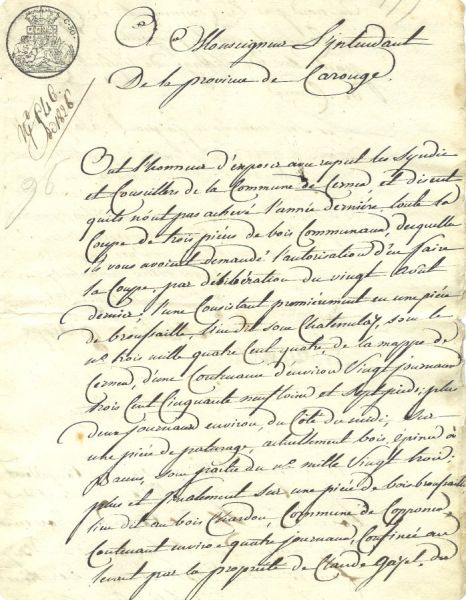 A Monseigneur L'intendant
De la province de Carouge.
N° 546.
1826
96
Ont l'honneur d'exposer avec respect les Syndic
et Conseillers de la Commune de Cernex, et disent
qu'ils n'ont pas achevé l'année dernière, toute la
Coupe de trois pièces de bois Communaux, desquelles
ils vous avoient demandé l'autorisation d'en faire
la Coupe, par délibération du vingt Août
dernier. l'une Consistant premièrement en une pièce
de broussaille, lieu dit sous Chatenulaz, sous le
n° trois mille quatre Cent quatre, de la mappe de
Cernex, d'une Contenance d'environ Vingt journaux
trois Cent Cinquante neuf toises et Sept pieds; plus
deux journaux environ, du Côté du midi, sur
une pièce de paturage, actuellement bois, épines à
sous partie du n° mille Vingt trois:
plus et finalement sur une pièce de bois broussailles
lieu dit au bois Chardon, Commune de Copponex
Contenant environ quatre journaux, Confinée au
levant par la propriété de Claude du